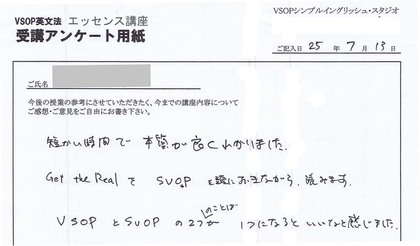 VSOPシンプルイングリッシュ・スタジオ
VSOP英文法 エッセンス講座
受講アンケート用紙
ご記入日 25 年 7 月 13 日
ご氏名
今後の授業の参考にさせていただきたく、今までの講座内容について
ご感想・ご意見をご自由にお書き下さい。
短かい時間で 本質が良くわかりました.
Get the Real を SVOP を頭におきながら、読みます.
のことば
VSOP と SVOP の 2つが 1つになると いいなと感じました.